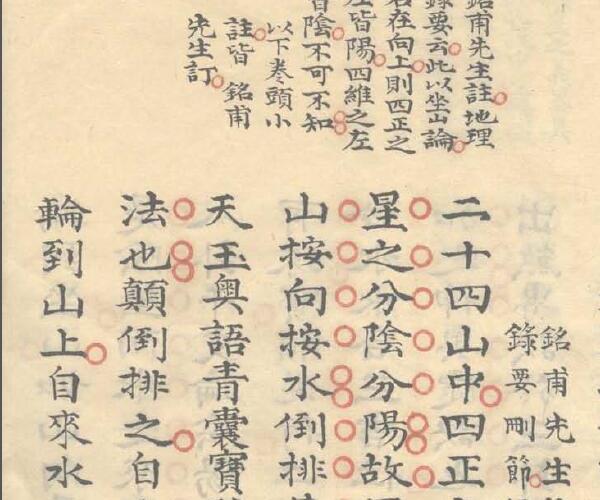 銘甫先生註地理
錄要云此以坐山論
若在向上則四正之
左皆陽四維之左
皆陰不可不知
以下卷頭小
註皆 銘甫
先生訂
銘甫先生
錄要刪節
二十四山中四正
星之分陰分陽故
山按向按水倒排
天玉奧語青囊寶
法也顛倒排之自
輪到山上自來水